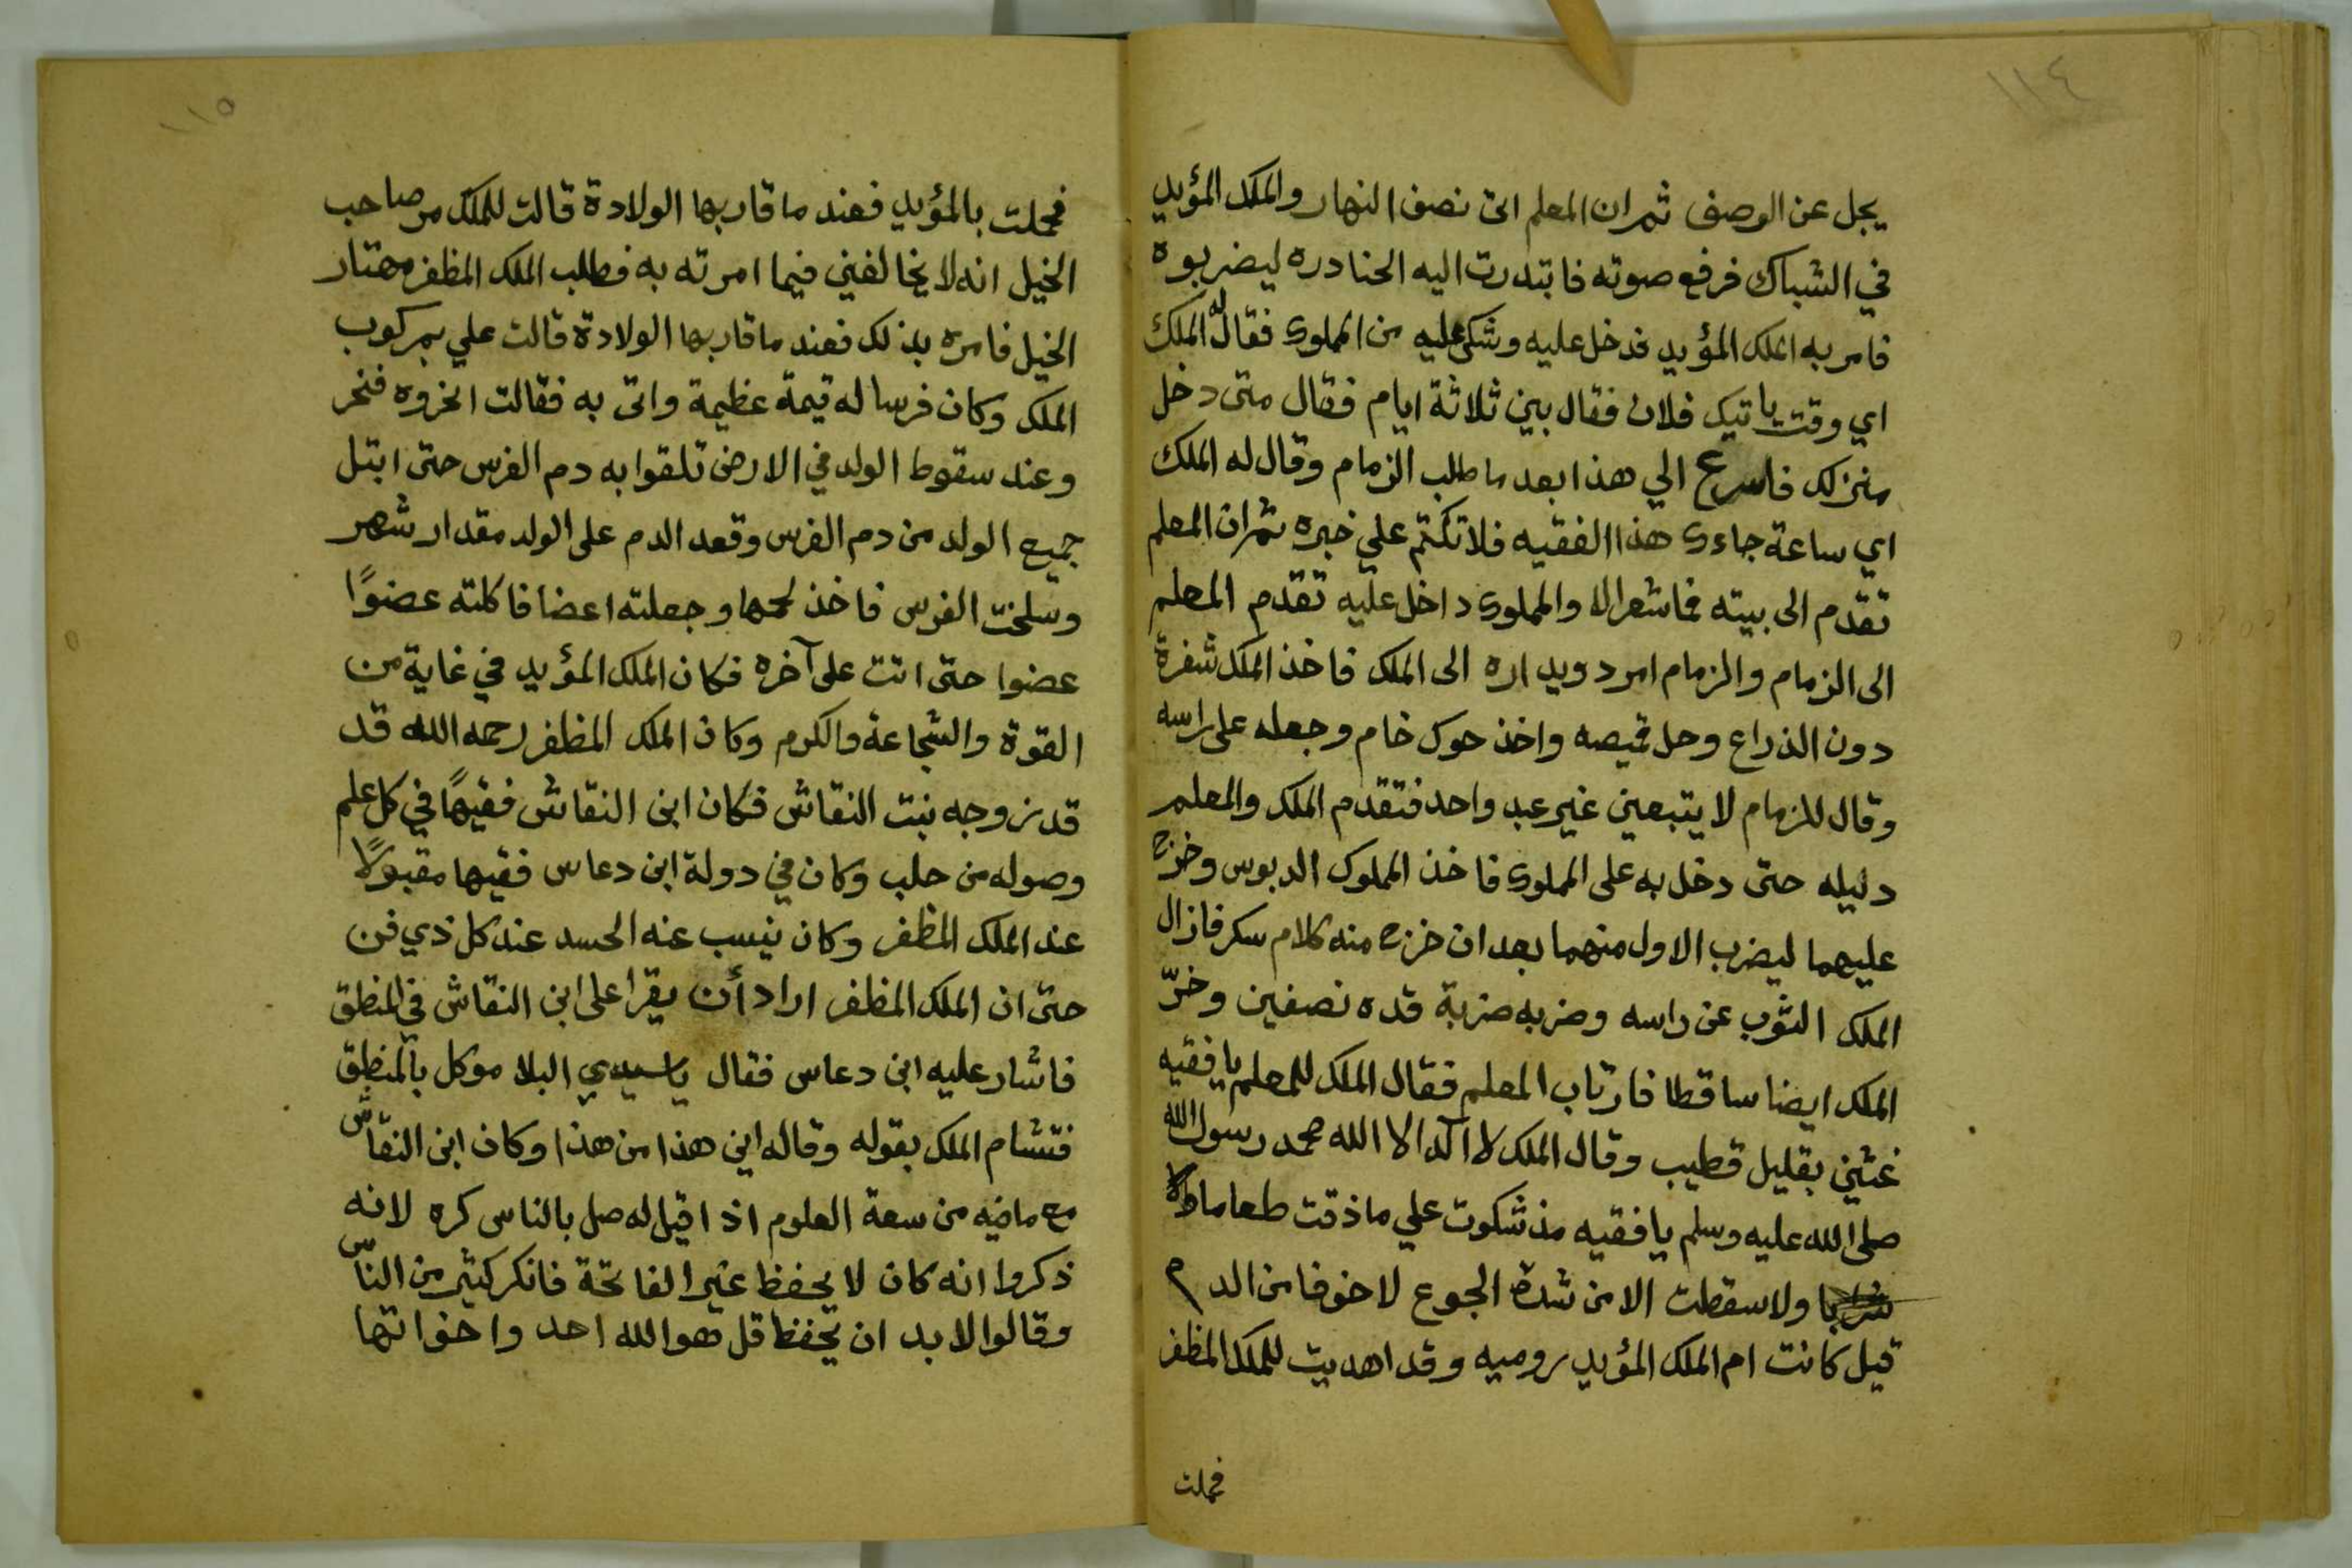 ١١٤
يجل عن الوصف ثم ان المعلم اتى نصف النهار والملك المؤيد
في الشباك فرفع صوته فابتدرت اليه الحنادره ليضربوه
فامر به الملك المؤيد فدخل عليه وشكى عليه من المملوك فقال له الملك
اي وقت ياتيك فلان فقال بين ثلاثة ايام فقال متى دخل
منزلك فاسرع الي هذا بعد ما طلب الزمام وقال له الملك
اي ساعة جاءك هذا الفقيه فلا تكتم علي خبره ثم ان المعلم
تقدم الى بيته فما شعر الا والمملوك داخل عليه تقدم المعلم
الى الزمام والزمام امر دويداره الى الملك فاخذ الملك شفرة
دون الذراع وحل قميصه واخذ حوك خام وجعله على راسه
وقال للزمام لا يتبعني غير عبد واحد فتقدم الملك والمعلم
دليله حتى دخل به على المملوك فاخذ المملوك الدبوس وخرج
عليهما ليضرب الاول منهما بعد ان خرج منه كلام سكر فازال
الملك الثوب عن راسه وضربه ضربة قده نصفين وخرّ
الملك ايضا ساقطا فارتاب المعلم فقال الملك للمعلم يا فقيه
غثني بقليل قطيب وقال الملك لا آله الا الله محمد رسول الله
صلى الله عليه وسلم يا فقيه مذ شكوت علي ما ذقت طعاما ولا
شرابا ولا سقطت الا من شدة الجوع لا خوفا من الدم
قيل كانت ام الملك المؤيد روميه وقد اهديت للملك المظفر
فحملت
١١٥
فحملت بالمؤيد فعند ما قاربها الولادة قالت للملك مر صاحب
الخيل انه لا يخالفني فيما امرته به فطلب الملك المظفر مهتار
الخيل فامره بذلك فعند ما قاربها الولادة قالت علي بمركوب
الملك وكان فرسا له قيمة عظيمة واتى به فقالت انحروه فنحر
وعند سقوط الولد في الارض تلقوا به دم الفرس حتى ابتل
جميع الولد من دم الفرس وقعد الدم على الولد مقدار شهر
وسلخت الفرس فاخذ لحمها وجعلته اعضا فاكلته عضوًا
عضوا حتى اتت على آخره فكان الملك المؤيد في غاية من
القوة والشجاعة والكرم وكان الملك المظفر رحمه الله قد
قد زوجه بنت النقاش فكان ابن النقاش فقيهًا في كل علم
وصوله من حلب وكان في دولة ابن دعاس فقيها مقبولًا
عند الملك المظفر وكان ينسب عنه الحسد عند كل ذي فن
حتى ان الملك المظفر اراد أن يقرا على ابن النقاش في المنطق
فاشار عليه ابن دعاس فقال يا سيدي البلا موكل بالمنطق
فتشام الملك بقوله وقاله اين هذا من هذا وكان ابن النقّاش
مع ما فيه من سعة العلوم اذا قيل له صل بالناس كره لانه
ذكروا انه كان لا يحفظ غير الفاتحة فانكر كثير من النّاس
وقالوا لابد ان يحفظ قل هو الله احد واخواتها